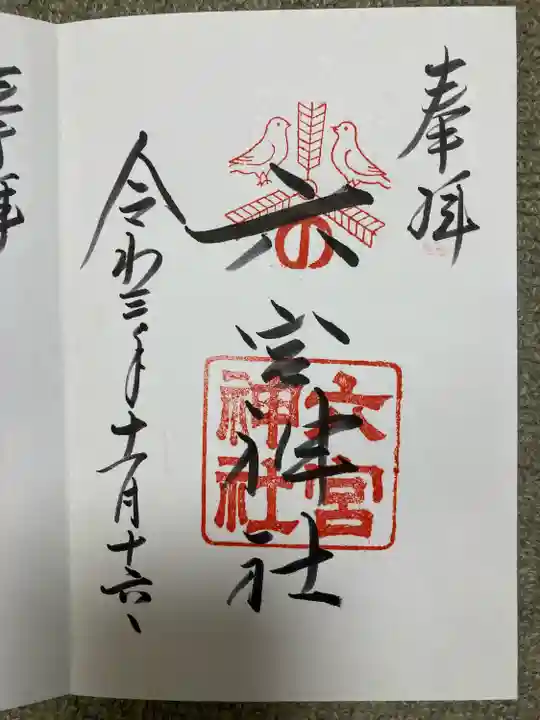 奉拝
六の宮神社
六宮
神社
令和三年十一月十六日